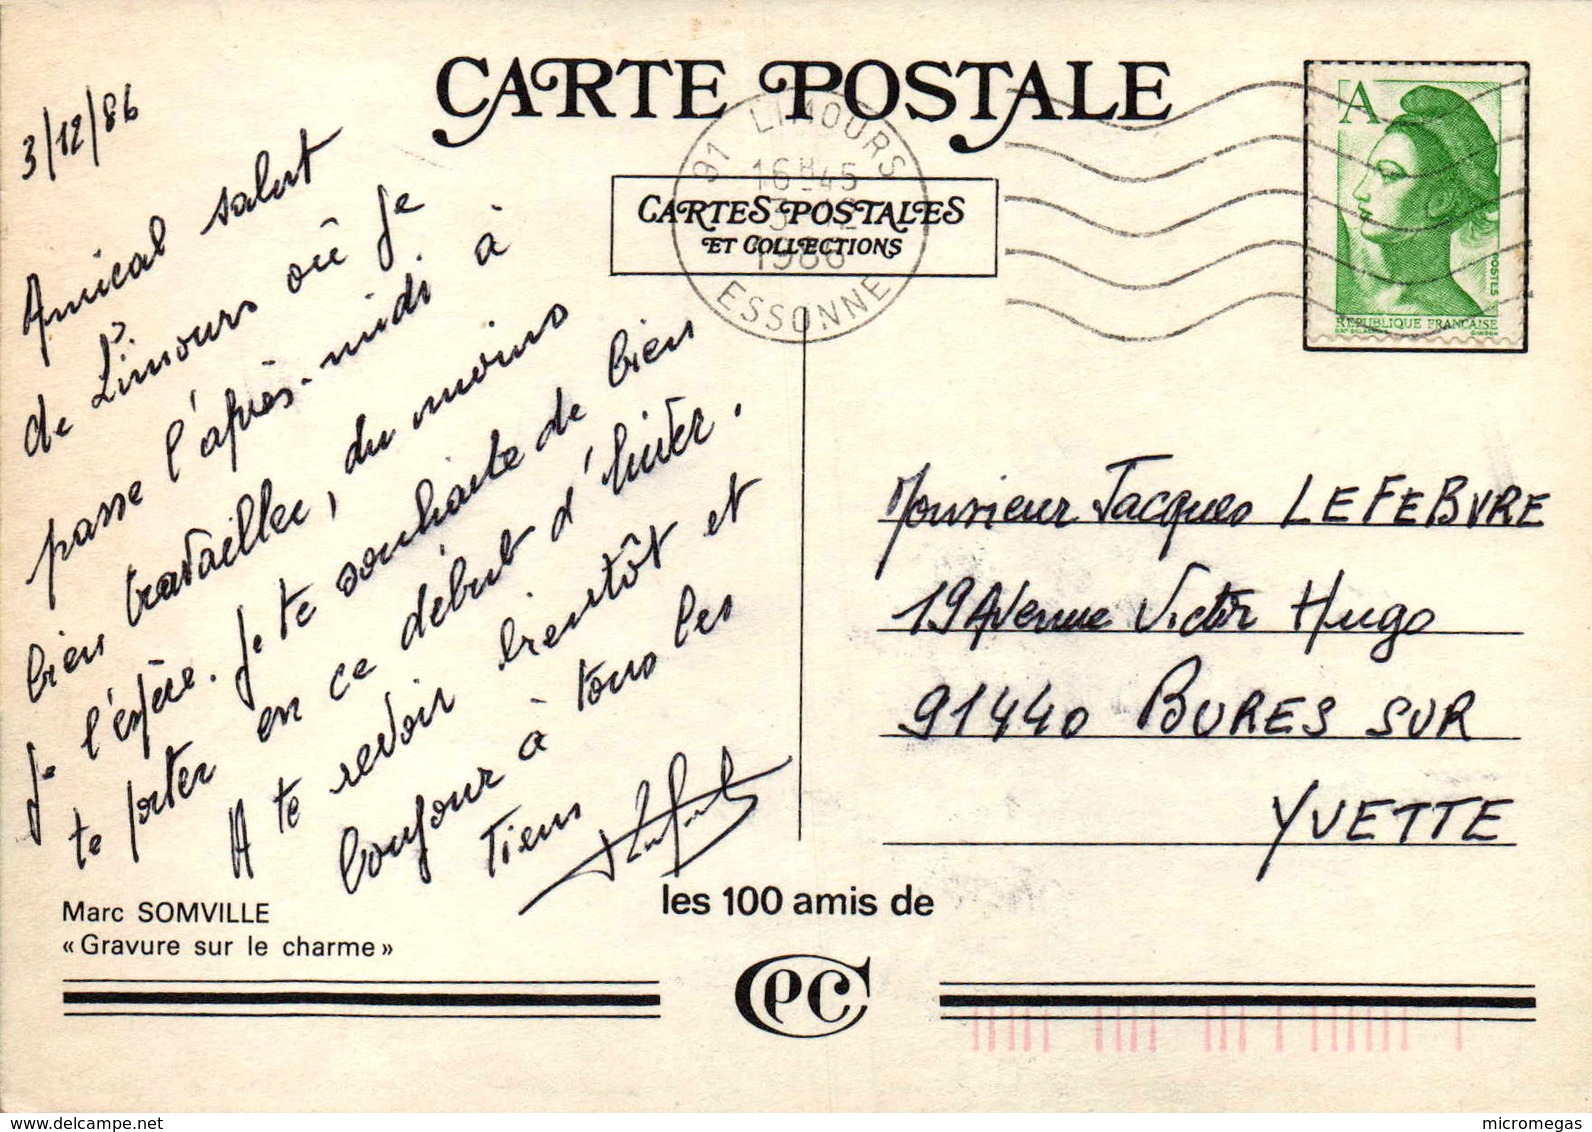 CARTE POSTALE
3/12/86
91 LIMOURS
16H45
3
1986
ESSONNE
CARTES POSTALES
ET COLLECTIONS
A
POSTES
REPUBLIQUE FRANÇAISE
Amical salut
de Limours où je
passe l'après-midi à
bien travailler, du moins
je l'espère. Je te souhaite de bien
te porter en ce début d'hiver.
A te revoir bientôt et
bonjour à tous les
tiens
Monsieur Jacques LEFEBVRE
19 Avenue Victor Hugo
91440 BURES SUR
YVETTE
Marc SOMVILLE
« Gravure sur le charme »
les 100 amis de
CPC
www.delcampe.net
micromegas